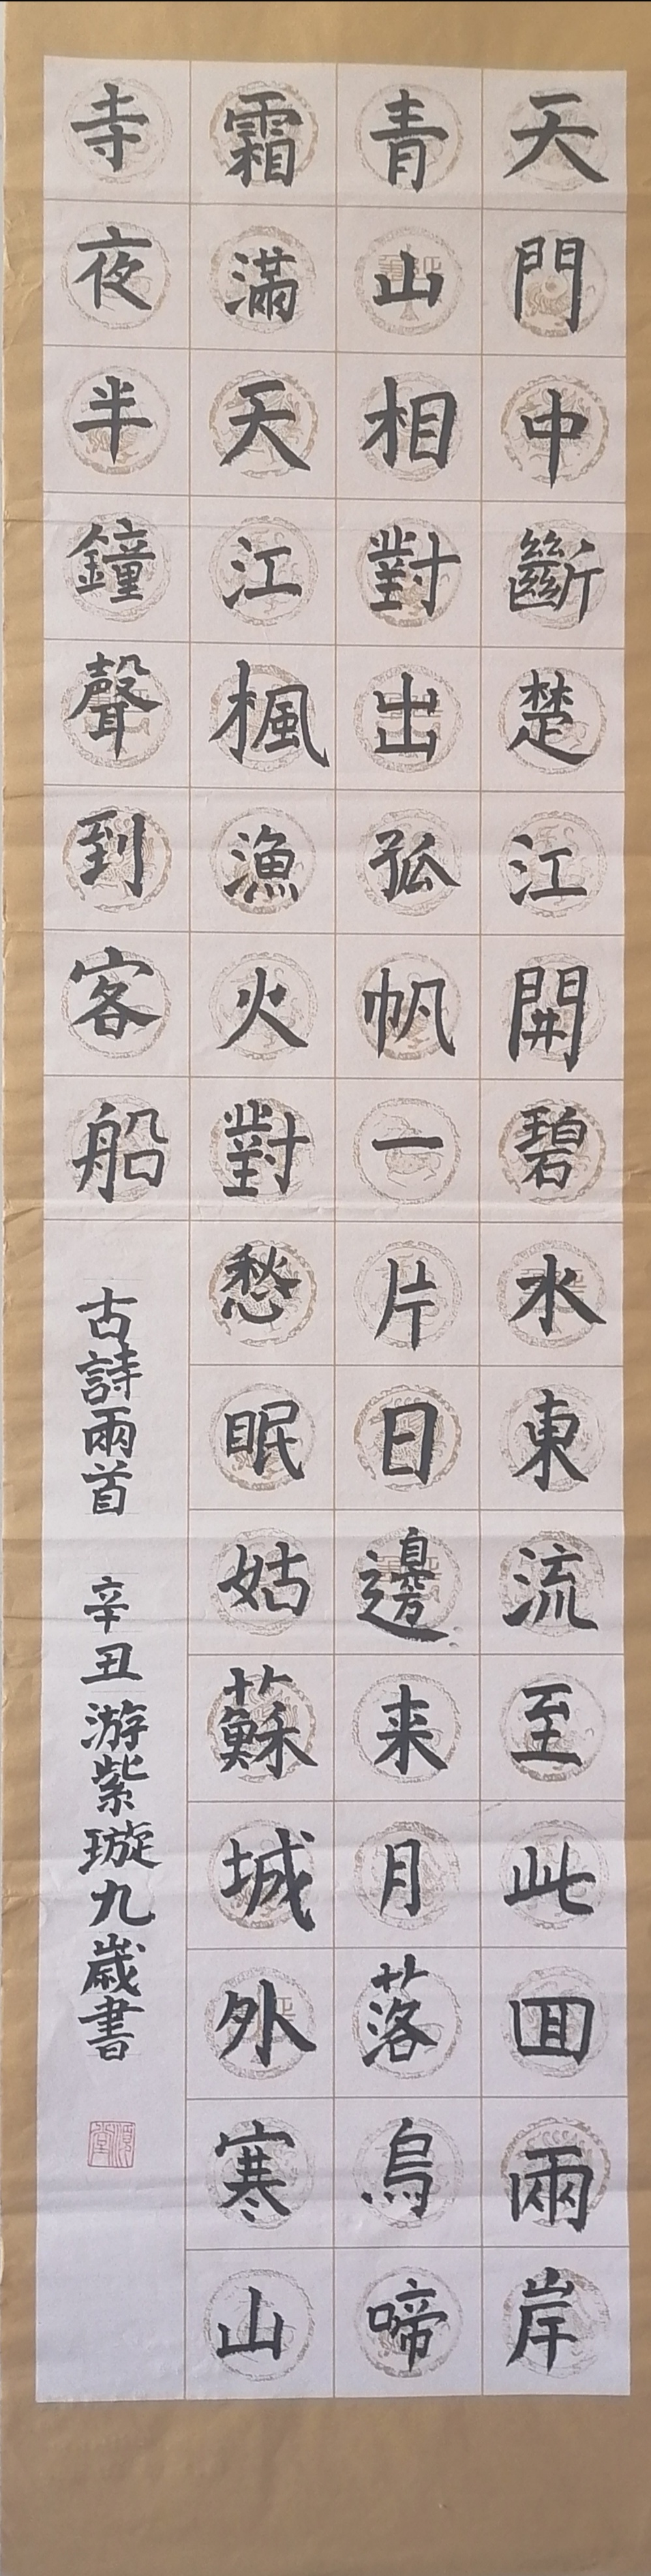 天門中斷楚江開碧水東流至此回兩岸
青山相對出孤帆一片日邊来月落烏啼
霜滿天江楓漁火對愁眠姑蘇城外寒山
寺夜半鐘聲到客船
古詩兩首 辛丑游紫璇九歲書